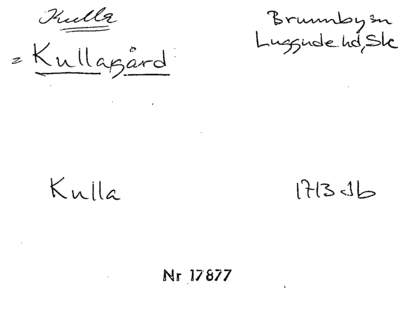 Kulla
= Kullagård
Brunnby sn
Luggude hd, Sk
Kulla
1713 Jb
Nr 17877